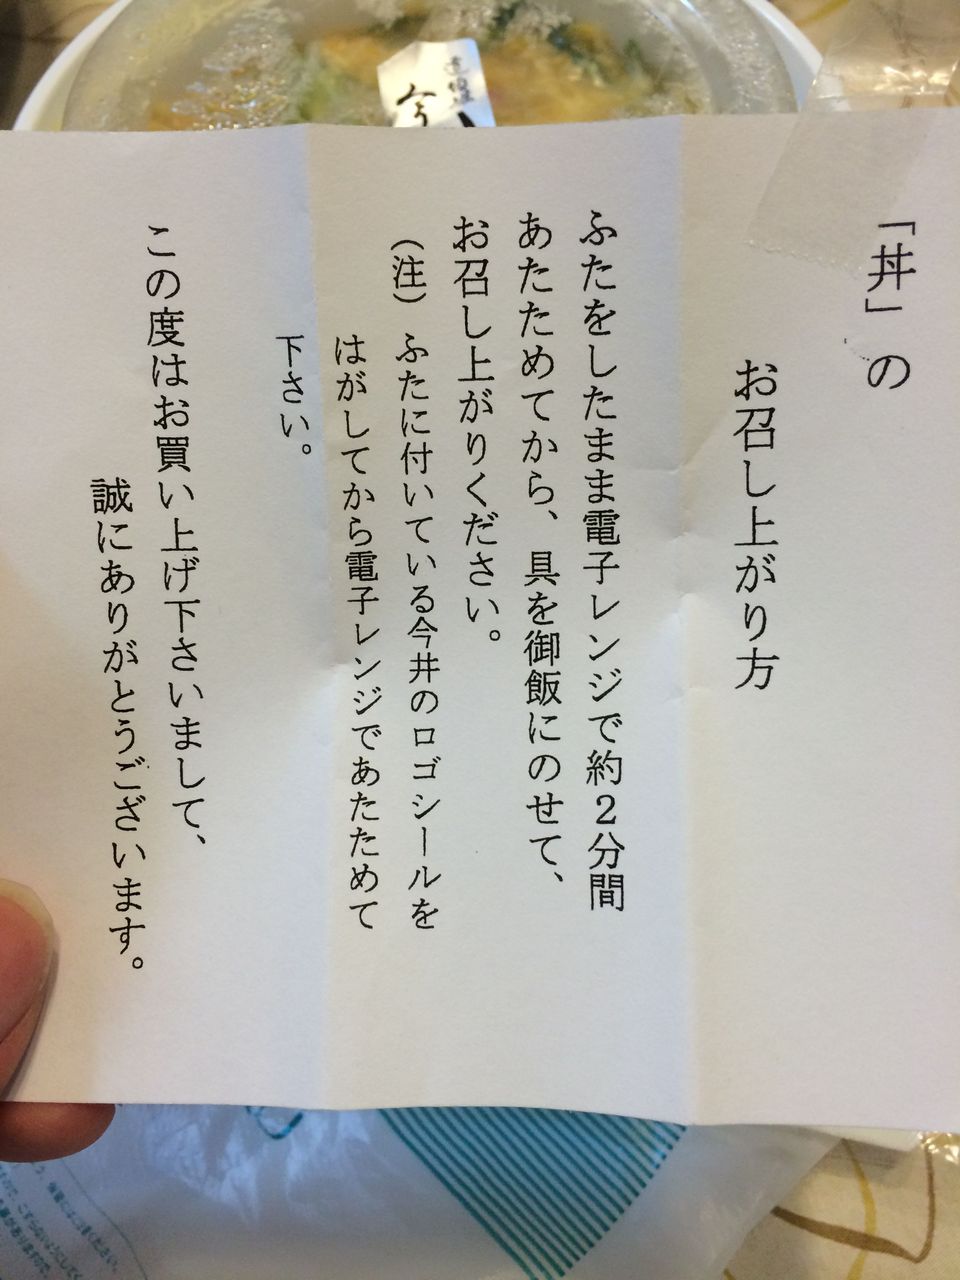 「丼」の
お召し上がり方
ふたをしたまま電子レンジで約２分間
あたためてから、具を御飯にのせて、
お召し上がりください。
（注）ふたに付いている今井のロゴシールを
はがしてから電子レンジであたためて
下さい。
この度はお買い上げ下さいまして、
誠にありがとうございます。